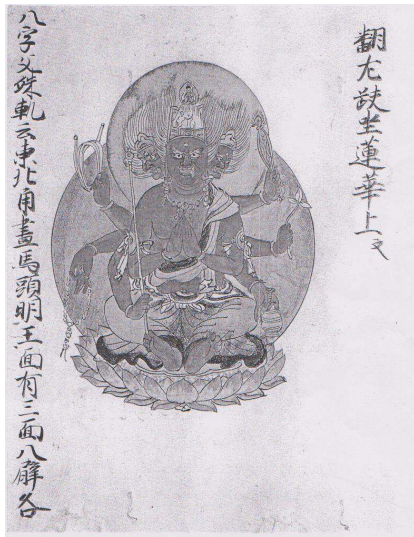 翻左跂坐蓮華上文
八字文殊軌云東北角畫馬頭明王面有三面八臂各